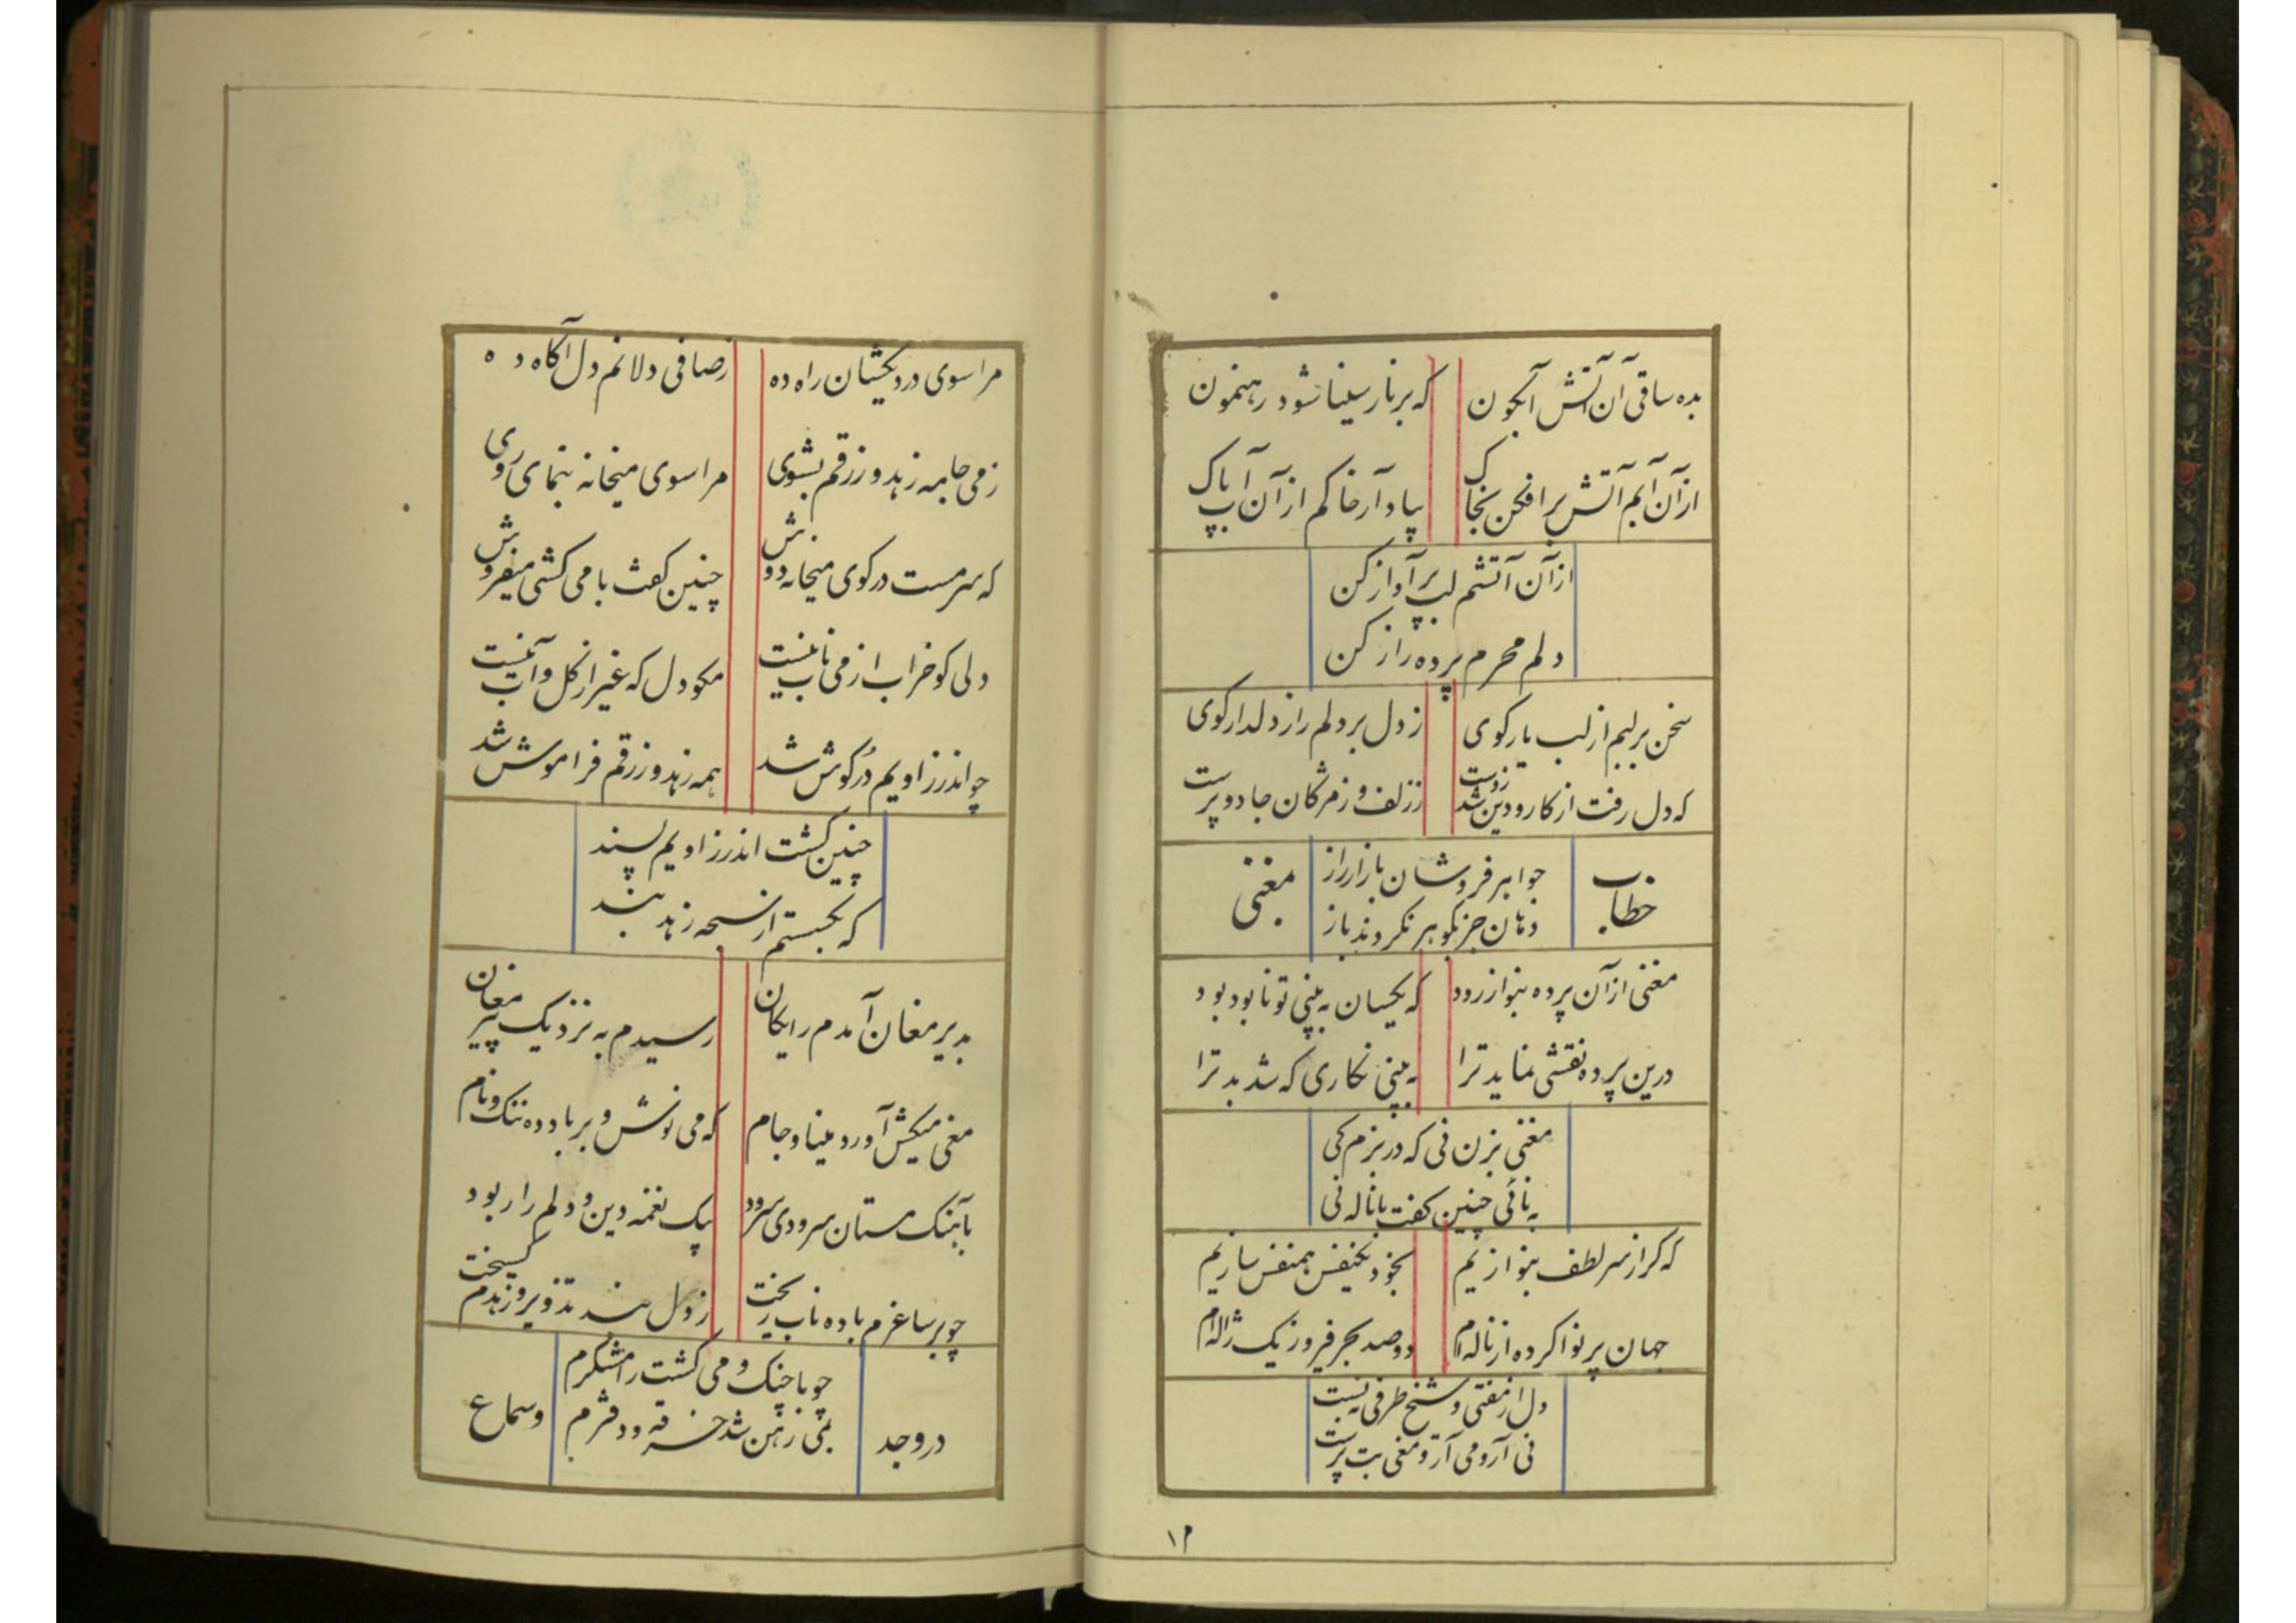 بده ساقی آن آتش آبگون که بر نار سینا شود رهنمون
از آن آبم آتش برافکن بخاک بباد آر خاکم از آن آب پاک
از آن آتشم لب پر آواز کن
دلم محرم پرده راز کن
سخن بر لبم از لب یار کوی ز دل بر دلم راز دلدار کوی
که دل رفت از کار و دین شد ز دست ز زلف و ز مژگان جادو پرست
خطاب جواهر فروشان بازار راز مغنی
دهان جز بکوهر نکردند باز
مغنی از آن پرده بنواز رود که یکسان به بینی تو نابود بود
درین پرده نقشی نماید ترا به بینی نکاری که شد بد ترا
مغنی بزن نی که در بزم کی
به نائی چنین کفت با ناله نی
که کر از سر لطف بنوازیم بخود یکنفس همنفس سازیم
جهان پر نوا کرده از ناله‌ام دو صد بحر فیروز یک ژاله‌ام
دل از مفتی و شیخ طرفی نبست
نی آر و می آر و مغی بت پرست
۱۲
مرا سوی دردیکشان راه ده ز صافی دلانم دل آکاه ده
ز می جامه زهد و زرقم بشوی مرا سوی میخانه بنمای روی
که سرمست در کوی میخانه دوش چنین کفت با می کشی میفروش
دلی کو خراب از می ناب نیست مکو دل که غیر از کل و آب نیست
چو اندرز او یم در کوش شد همه زهد و زرقم فراموش شد
چنین کشت اندرز او یم پسند
که بکسستم از سبحه زهد بند
بدیر مغان آمدم رایکان رسیدم به نزدیک پیر مغان
مغی میکش آورد مینا و جام که می نوش و بر باد ده ننک و نام
بآهنک مستان سرودی سرود بیک نغمه دین و دلم را ربود
چو بر ساغرم باده ناب ریخت ز دل بند تذویر و زهدم کسیخت
در وجد چو با چنک و می کشت رامشکرم و سماع
بمی رهن شد خرقه و دفترم